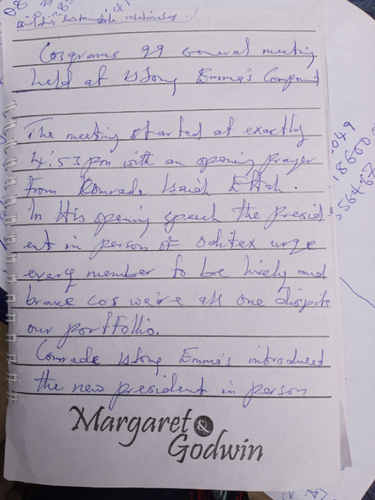 sustainable relationship.
Cosgrams 99 general meeting
held at Usong Emma's Compound
The meeting started at exactly
4:53pm with an opening prayer
from Comrade Isaiah Ettah.
In His opening speech the Presid
ent in person of Oditex urge
every member to be lively and
brave cos we're all one dispite
our portfolio.
Comrade Usong Emma's introduced
the new president in person
Margaret & Godwin